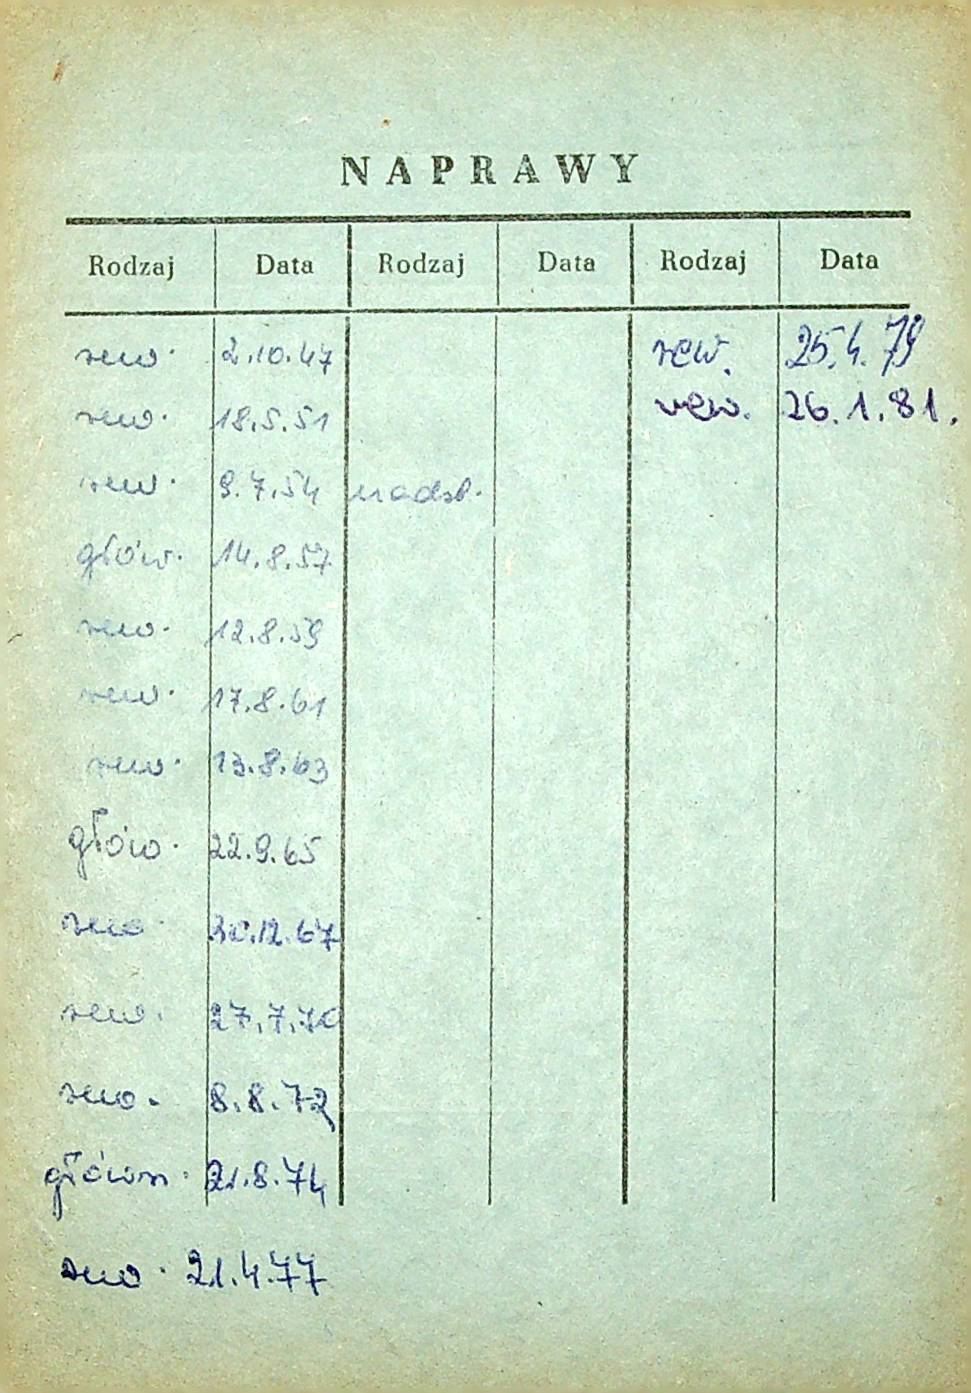 NAPRAWY
Rodzaj Data Rodzaj Data Rodzaj Data
rew. 2.10.47 rew. 25.4.79
rew. 18.5.51 rew. 26.1.81.
rew. 9.7.54 nadsł.
głów. 14.8.57
rew. 12.8.59
rew. 17.8.61
rew. 13.8.63
głów. 22.9.65
rew. 30.12.67
rew. 27.7.70
rew. 8.8.72
główn. 21.8.74
rew. 21.4.77